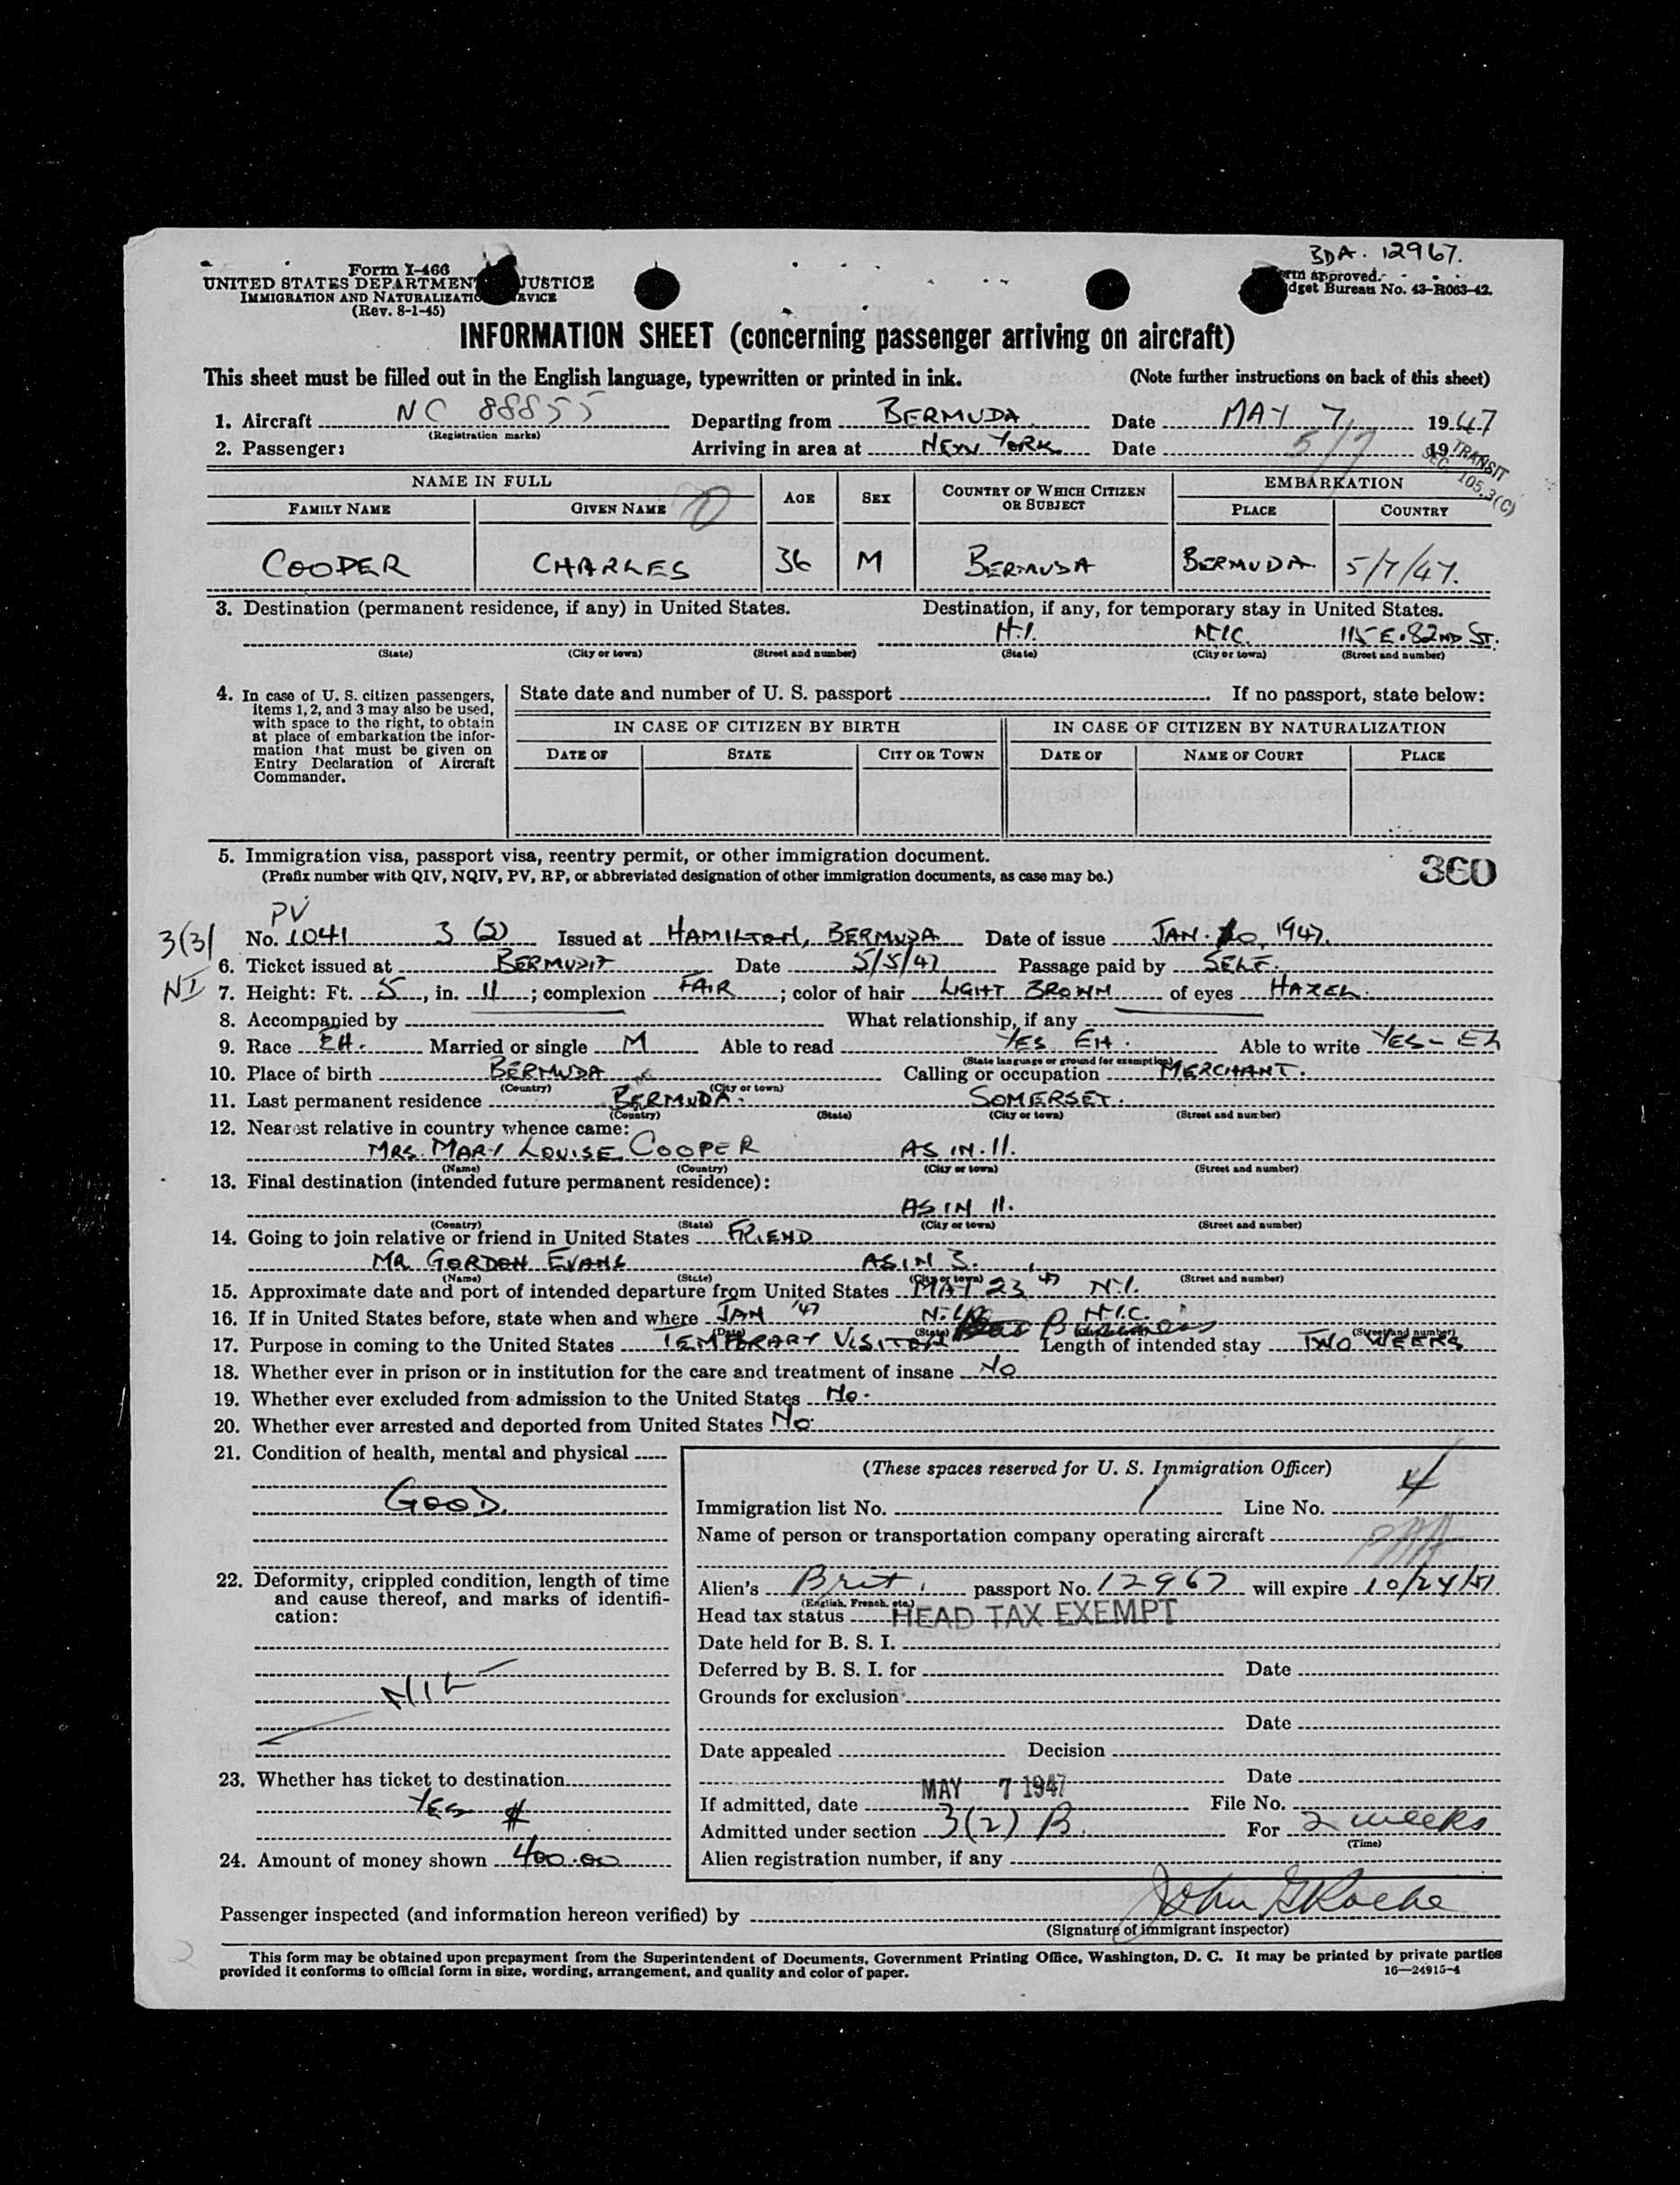 BDA. 12967.
Form I-466
UNITED STATES DEPARTMENT JUSTICE
Form approved.
IMMIGRATION AND NATURALIZATION SERVICE
Budget Bureau No. 43-R063-42.
(Rev. 8-1-45)
INFORMATION SHEET (concerning passenger arriving on aircraft)
This sheet must be filled out in the English language, typewritten or printed in ink. (Note further instructions on back of this sheet)
1. Aircraft NC 88855 Departing from BERMUDA. Date MAY 7, 1947
(Registration marks)
2. Passenger: Arriving in area at NEW YORK Date 5/7 19
TRANSIT
SEC. 105.3(C)
NAME IN FULL AGE SEX COUNTRY OF WHICH CITIZEN OR SUBJECT EMBARKATION
FAMILY NAME GIVEN NAME PLACE COUNTRY
COOPER CHARLES 36 M BERMUDA BERMUDA. 5/7/47.
3. Destination (permanent residence, if any) in United States. Destination, if any, for temporary stay in United States.
N.Y. NYC. 115 E. 82ND ST.
(State) (City or town) (Street and number) (State) (City or town) (Street and number)
4. In case of U. S. citizen passengers, items 1, 2, and 3 may also be used, with space to the right, to obtain at place of embarkation the information that must be given on Entry Declaration of Aircraft Commander.
State date and number of U. S. passport . If no passport, state below:
IN CASE OF CITIZEN BY BIRTH IN CASE OF CITIZEN BY NATURALIZATION
DATE OF STATE CITY OR TOWN DATE OF NAME OF COURT PLACE
5. Immigration visa, passport visa, reentry permit, or other immigration document.
360
(Prefix number with QIV, NQIV, PV, RP, or abbreviated designation of other immigration documents, as case may be.)
PV
3(3) No. 1041 3 (2) Issued at HAMILTON, BERMUDA Date of issue JAN. 20, 1947.
6. Ticket issued at BERMUDA Date 5/5/47 Passage paid by SELF.
NI 7. Height: Ft. 5, in. 11; complexion FAIR; color of hair LIGHT BROWN of eyes HAZEL.
8. Accompanied by What relationship, if any
9. Race EH. Married or single M Able to read YES EH. Able to write YES - EH
(State language or ground for exemption)
10. Place of birth BERMUDA Calling or occupation MERCHANT.
(Country) (City or town)
11. Last permanent residence BERMUDA. SOMERSET.
(Country) (State) (City or town) (Street and number)
12. Nearest relative in country whence came:
MRS. MARY LOUISE COOPER AS IN. 11.
(Name) (Country) (City or town) (Street and number)
13. Final destination (intended future permanent residence):
AS IN 11.
(Country) (State) (City or town) (Street and number)
14. Going to join relative or friend in United States FRIEND
MR GORDON EVANS AS IN 3.
(Name) (State) (City or town) (Street and number)
15. Approximate date and port of intended departure from United States MAY 23 '47 N.Y.
16. If in United States before, state when and where JAN '47 N.Y. NYC.
(Date) (State) (City or town) (Street and number)
17. Purpose in coming to the United States TEMPORARY VISITOR Business Length of intended stay TWO WEEKS
18. Whether ever in prison or in institution for the care and treatment of insane NO
19. Whether ever excluded from admission to the United States NO.
20. Whether ever arrested and deported from United States NO.
21. Condition of health, mental and physical
GOOD.
22. Deformity, crippled condition, length of time and cause thereof, and marks of identification:
NIL
23. Whether has ticket to destination
YES $
24. Amount of money shown 400.00
(These spaces reserved for U. S. Immigration Officer)
Immigration list No. 1 Line No. 4
Name of person or transportation company operating aircraft PAA
Alien's Brit. passport No. 12967 will expire 10/24/51.
(English, French, etc.)
Head tax status HEAD TAX EXEMPT
Date held for B. S. I.
Deferred by B. S. I. for Date
Grounds for exclusion
Date
Date appealed Decision
Date
If admitted, date MAY 7 1947 File No.
Admitted under section 3(2) B. For 2 weeks
(Time)
Alien registration number, if any
Passenger inspected (and information hereon verified) by John G Roche
(Signature of immigrant inspector)
This form may be obtained upon prepayment from the Superintendent of Documents, Government Printing Office, Washington, D. C. It may be printed by private parties
provided it conforms to official form in size, wording, arrangement, and quality and color of paper. 16—24915-4